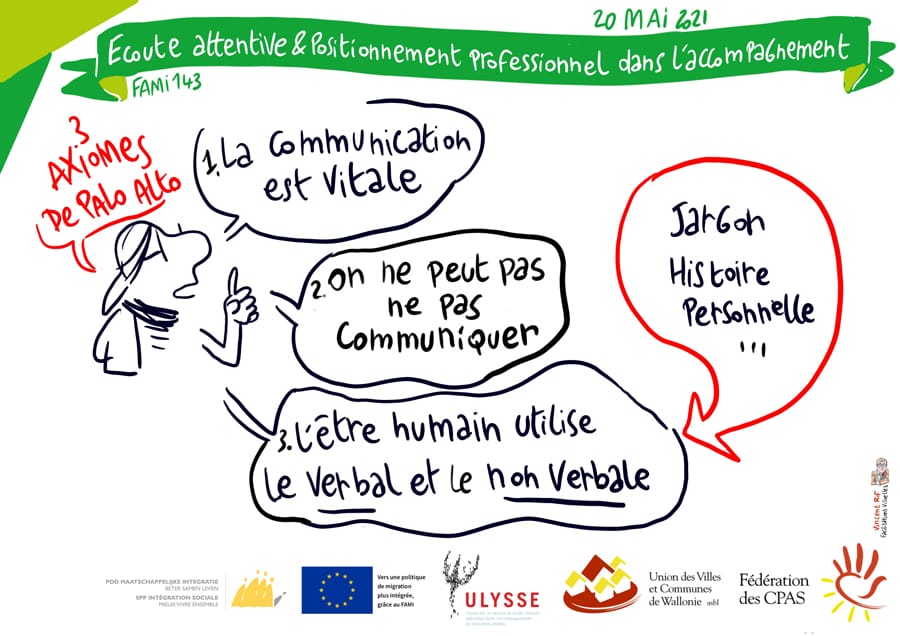 20 MAi 2021
Ecoute attentive & Positionnement professionnel dans l'accompagnement
FAMi 143
3
AXiOMES
De PALO ALTO
1. La communication
est vitale
2. On ne peut pas
ne pas
communiquer
3. L'être humain utilise
le verbal et le non verbale
Jargon
Histoire
Personnelle
...
Vincent Rif
Facilitations Visuelles
POD MAATSCHAPPELIJKE INTEGRATIE
BETER SAMEN LEVEN
SPP INTÉGRATION SOCIALE
MIEUX VIVRE ENSEMBLE
Vers une politique
de migration
plus intégrée,
grâce au FAMI
ULYSSE
Union des Villes
et Communes
de Wallonie asbl
Fédération
des CPAS